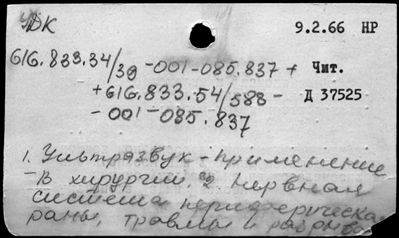 УДК 9.2.66 НР
616.833.34/39-001-085.837 + Чит.
+616.833.54/588- Д 37525
-001-085.837
1. Ультразвук - применение
- в хирургии. 2 Нервная
система периферическая
раны, травмы и разрывы